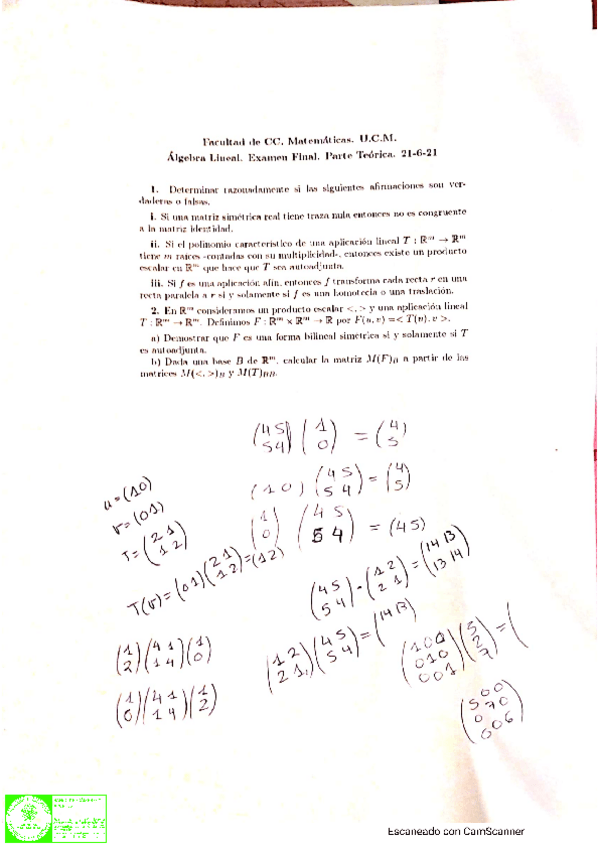 Facultad de CC. Matemáticas. U.C.M.
Álgebra Lineal. Examen Final. Parte Teórica. 21-6-21
1. Determinar razonadamente si las siguientes afirmaciones son ver-
daderas o falsas.
i. Si una matriz simétrica real tiene traza nula entonces no es congruente
a la matriz identidad.
ii. Si el polinomio característico de una aplicación lineal T : ℝᵐ → ℝᵐ
tiene m raíces -contadas con su multiplicidad-, entonces existe un producto
escalar en ℝᵐ que hace que T sea autoadjunta.
iii. Si f es una aplicación afín, entonces f transforma cada recta r en una
recta paralela a r si y solamente si f es una homotecia o una traslación.
2. En ℝᵐ consideramos un producto escalar <, > y una aplicación lineal
T : ℝᵐ → ℝᵐ. Definimos F : ℝᵐ × ℝᵐ → ℝ por F(u, v) =< T(u), v >.
a) Demostrar que F es una forma bilineal simétrica si y solamente si T
es autoadjunta.
b) Dada una base B de ℝᵐ, calcular la matriz M(F)B a partir de las
matrices M(<, >)B y M(T)BB.
(4 5 / 5 4) (1 / 0) = (4 / 5)
(1 0) (4 5 / 5 4) = (4 / 5)
(1 / 0) (4 5 / 5 4) = (4 5)
u = (1 0)
v = (0 1)
T = (2 1 / 1 2)
T(v) = (0 1) (2 1 / 1 2) = (1 2)
(4 5 / 5 4) · (1 2 / 2 1) = (14 13 / 13 14)
(1 2 / 2 1) (4 5 / 5 4) = (14 13
(1 / 2) (4 1 / 1 4) (1 / 0)
(1 / 0) (4 1 / 1 4) (1 / 2)
(1 0 0 / 0 1 0 / 0 0 1) (5 / 2 / 7) = (
(5 0 0 / 0 7 0 / 0 0 6)
Escaneado con CamScanner